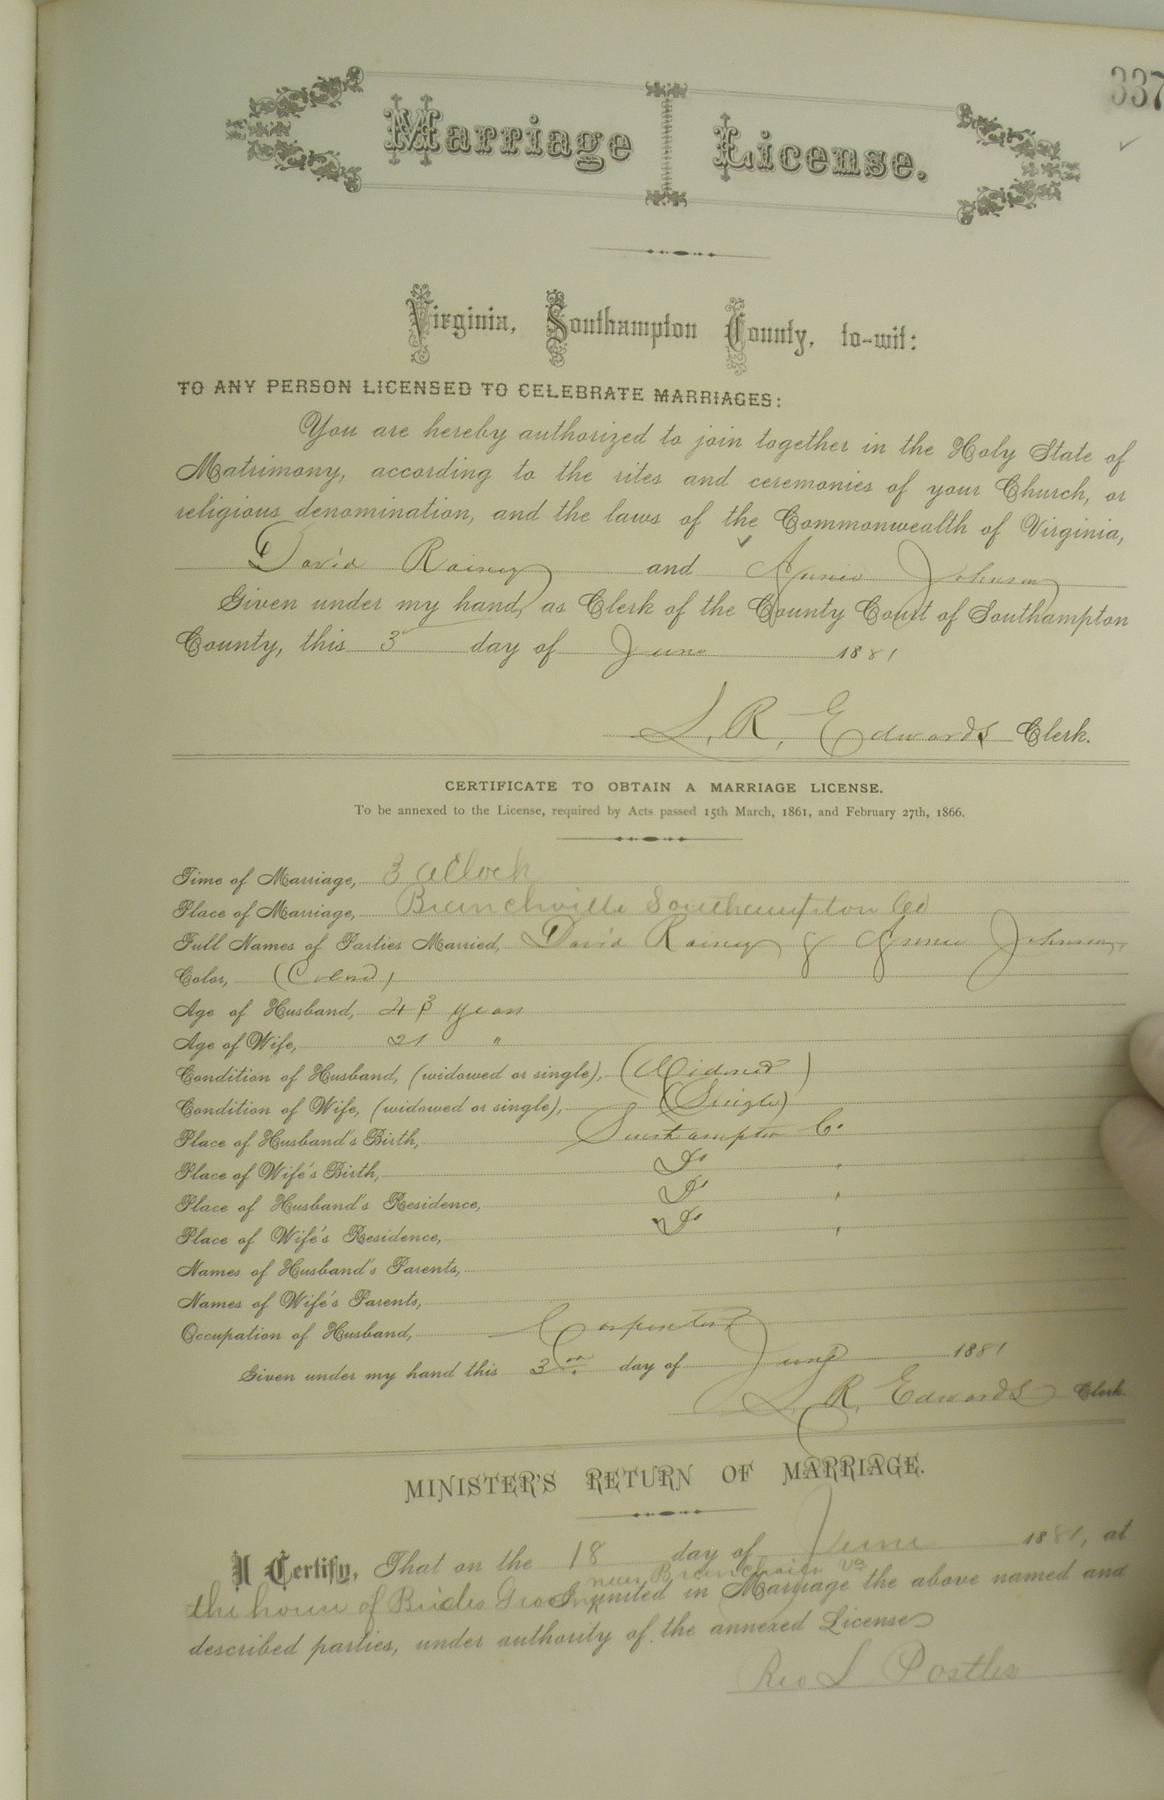 337
Marriage License.
Virginia, Southampton County, to-wit:
TO ANY PERSON LICENSED TO CELEBRATE MARRIAGES:
You are hereby authorized to join together in the Holy State of
Matrimony, according to the rites and ceremonies of your Church, or
religious denomination, and the laws of the Commonwealth of Virginia,
David Rainey and Johnson
Given under my hand, as Clerk of the County Court of Southampton
County, this 3 day of June 1881
L. R. Edwards Clerk.
CERTIFICATE TO OBTAIN A MARRIAGE LICENSE.
To be annexed to the License, required by Acts passed 15th March, 1861, and February 27th, 1866.
Time of Marriage, 3 oClock
Place of Marriage, Branchville Southampton Co
Full Names of Parties Married, David Rainey & Johnson
Color, (Colord)
Age of Husband, 43 years
Age of Wife, 21 "
Condition of Husband, (widowed or single), (Widowed)
Condition of Wife, (widowed or single), (Single)
Place of Husband's Birth, Southampton Co.
Place of Wife's Birth, Do
Place of Husband's Residence, Do
Place of Wife's Residence, Do
Names of Husband's Parents,
Names of Wife's Parents,
Occupation of Husband, Carpenter
Given under my hand this 3rd day of June 1881
L. R. Edwards Clerk
MINISTER'S RETURN OF MARRIAGE.
I Certify, That on the 18 day of June 1881, at
near Va
the house of Brides I united in Marriage the above named and
described parties, under authority of the annexed License
Rev L Postles